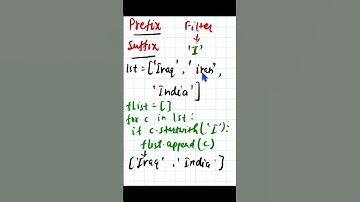 Prefix Filter
Suffix 'I'
lst = ['Iraq', 'iran',
'India']
flist = []
for c in lst:
if c.startswith('I'):
flist.append(c)
['Iraq', 'India']